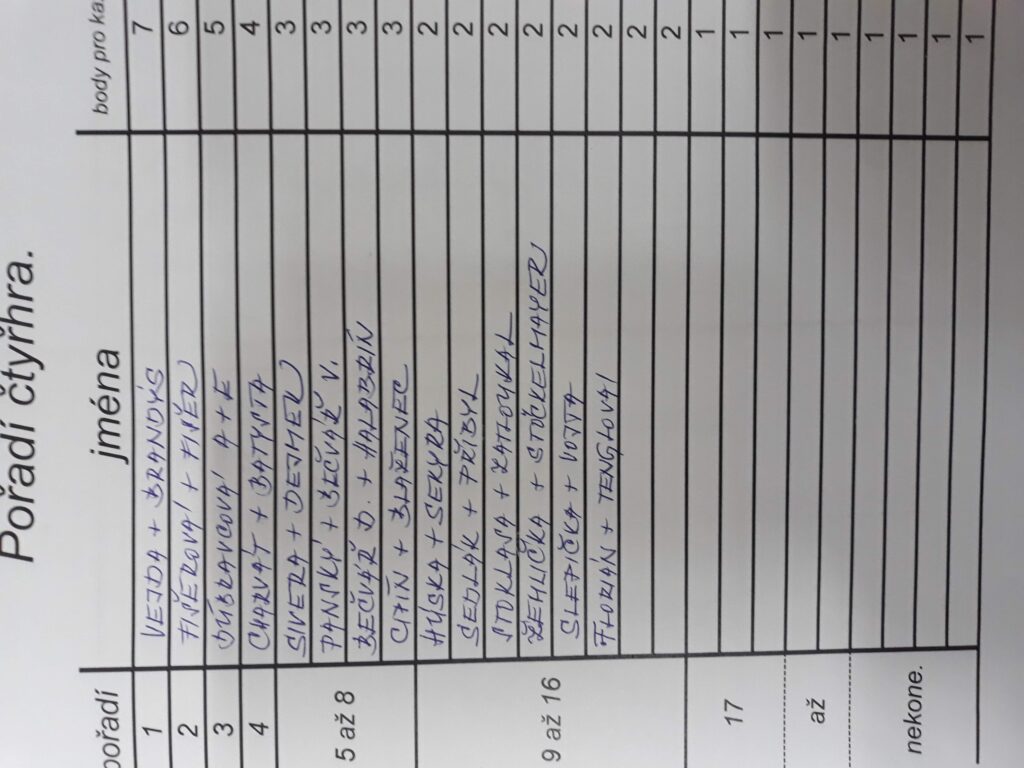 Pořadí čtyřhra.
pořadí jména body pro ka
1 VEJDA + BRANDÝS 7
2 FIŠEROVÁ + FIŠER 6
3 DÚBRAVCOVÁ A+E 5
4 CHARVÁT + BATYSTA 4
5 až 8 SIVERA + DEJMEK 3
PANSKÝ + BEČVÁŘ V. 3
BEČVÁŘ D. + HALABRÍN 3
BLAŽENEC 3
9 až 16 HUŠKA + SEKYRA 2
SEDLÁK + PŘIBYL 2
STOKLASA + ZATLOUKAL 2
ŽEHLIČKA + STÖCKELMAYER 2
SLEPIČKA + VOJTA 2
FLORIÁN + TENGLOVÁ 2
2
2
17 1
1
1
až 1
1
nekone. 1
1
1
1